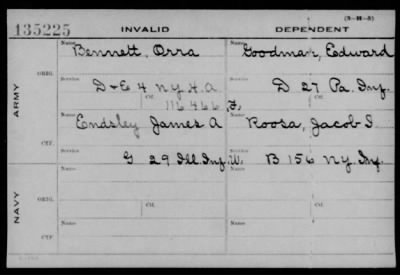 (3-M-5)
135225 INVALID DEPENDENT
ARMY
ORIG.
Name Bennett, Orra Name Goodman, Edward
Service D & E 4 N.Y. H.A. Service D 27 Pa. Inf.
Ctf. 116466 Ctf.
CTF.
Name Endsley James A Name Roosa, Jacob I.
Service G 29 Ill. Inf. W. Service B 156 N.Y. Inf.
NAVY
ORIG.
Name Name
Ctf. Ctf.
CTF.
Name Name